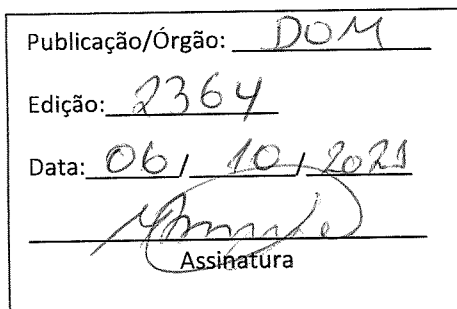 Publicação/Órgão: DOM
Edição: 2364
Data: 06 / 10 / 2021
Assinatura